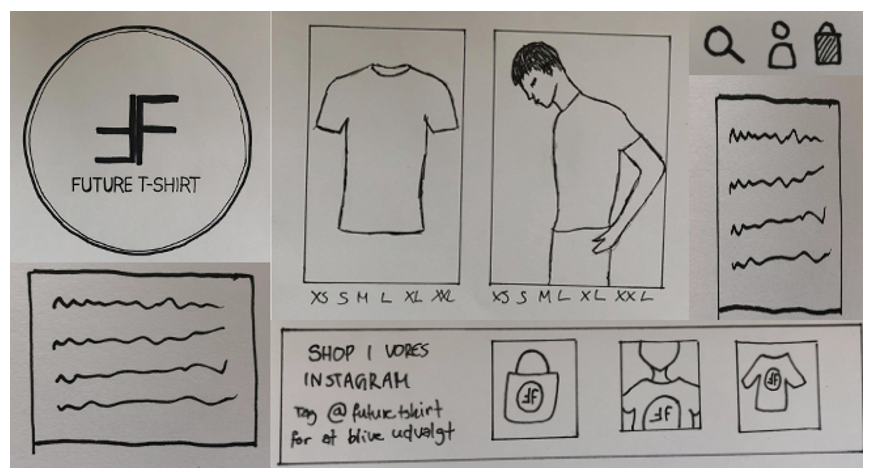 FUTURE T-SHIRT
XS S M L XL XXL
XS S M L XL XXL
SHOP I VORES
INSTAGRAM
Tag @futuretshirt
for at blive udvalgt